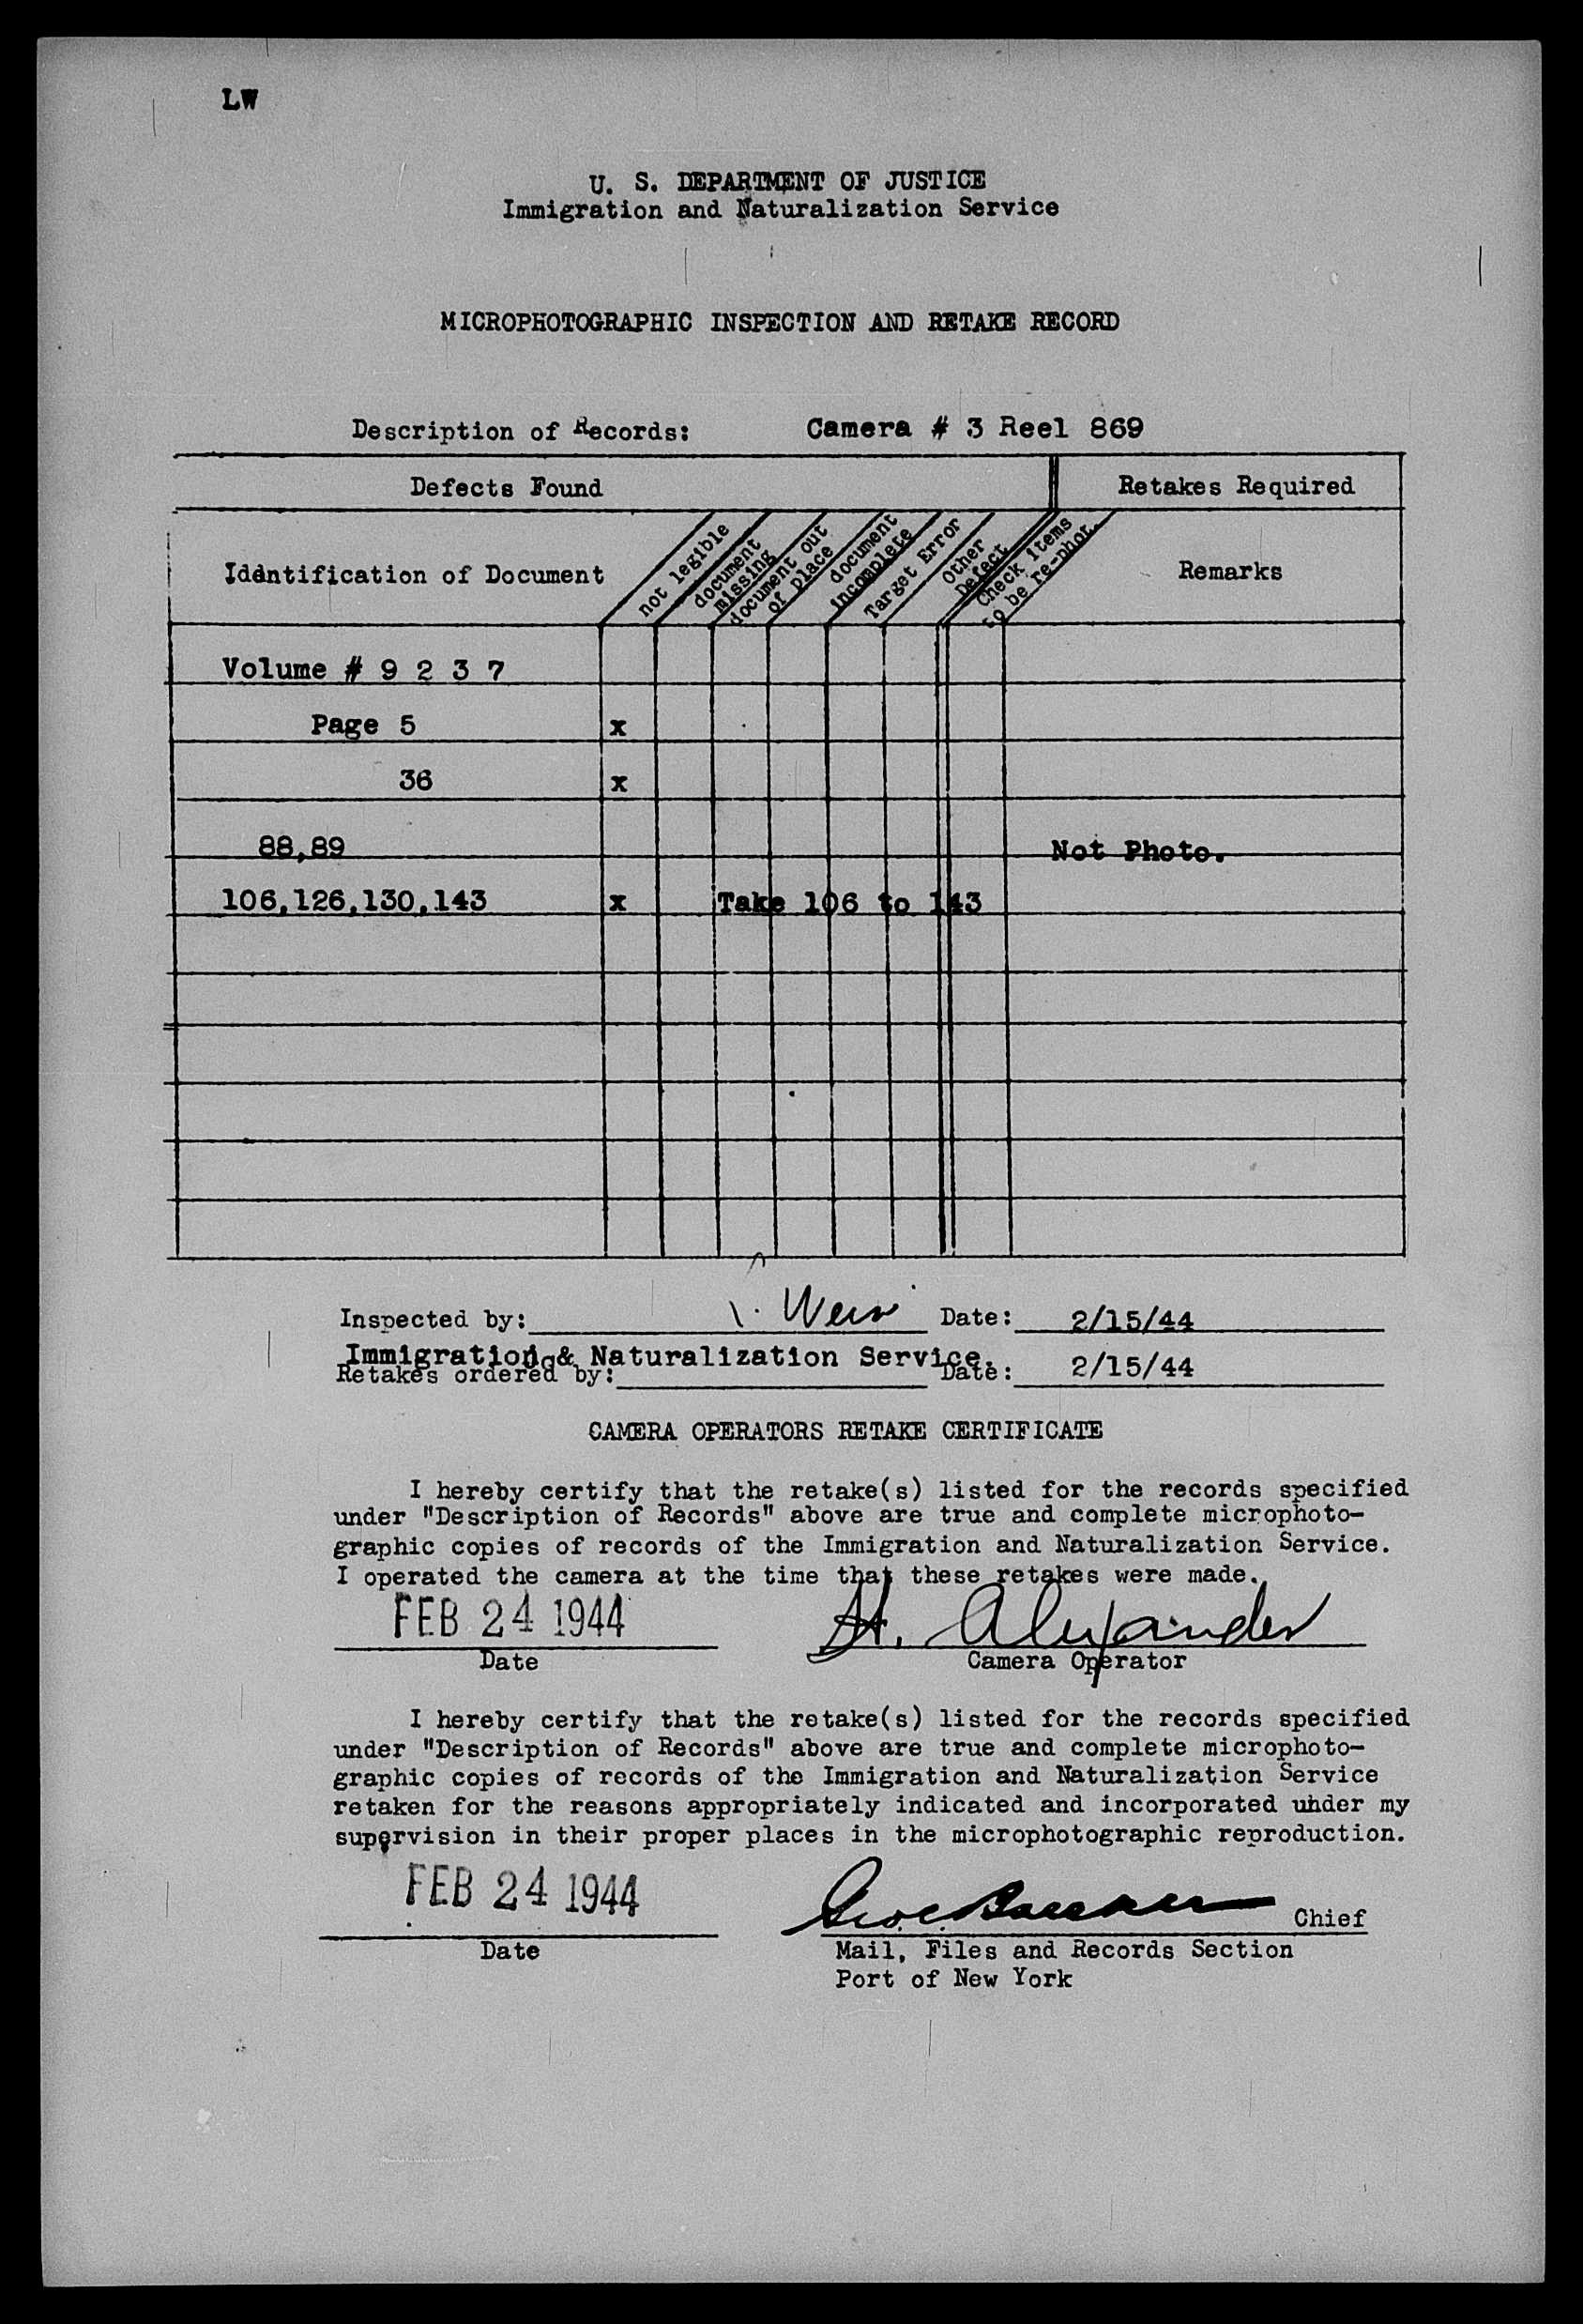 LW
U. S. DEPARTMENT OF JUSTICE
Immigration and Naturalization Service
MICROPHOTOGRAPHIC INSPECTION AND RETAKE RECORD
Description of Records: Camera # 3 Reel 869
Defects Found Retakes Required
Iddntification of Document
not legible
document
missing
document out
of place
document
incomplete
Target Error
Other
Defect
Check items
to be re-phot.
Remarks
Volume # 9 2 3 7
Page 5 x
36 x
88,89 Not Photo.
106,126,130,143 x Take 106 to 143
Inspected by: Date: 2/15/44
Immigration & Naturalization Service.
Retakes ordered by: Date: 2/15/44
CAMERA OPERATORS RETAKE CERTIFICATE
I hereby certify that the retake(s) listed for the records specified
under "Description of Records" above are true and complete microphoto-
graphic copies of records of the Immigration and Naturalization Service.
I operated the camera at the time that these retakes were made.
FEB 24 1944 H. Alexander
Date Camera Operator
I hereby certify that the retake(s) listed for the records specified
under "Description of Records" above are true and complete microphoto-
graphic copies of records of the Immigration and Naturalization Service
retaken for the reasons appropriately indicated and incorporated under my
supervision in their proper places in the microphotographic reproduction.
FEB 24 1944 Chief
Date Mail, Files and Records Section
Port of New York